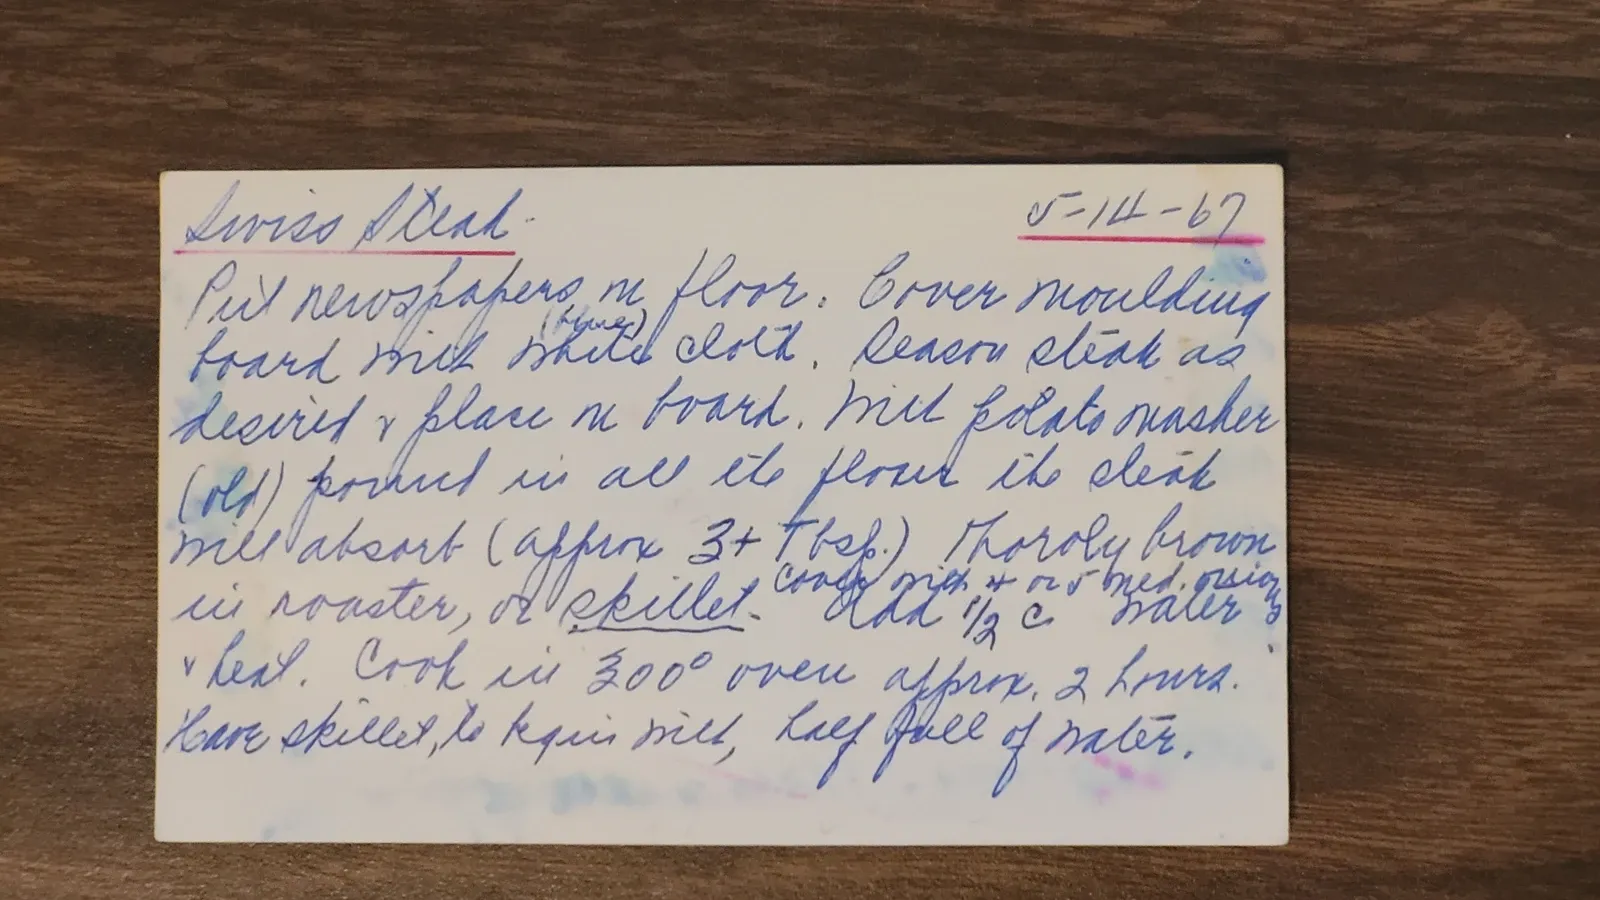 Swiss Steak
5-14-67
Put newspapers on floor. Cover moulding
(blue)
board with white cloth. Season steak as
desired & place on board. With potato masher
(old) pound in all the flour the steak
will absorb (approx 3+ Tbsp.) Thoroly brown
cover with 4 or 5 med. onions
in roaster, or skillet. Add 1/2 c water
& heat. Cook in 300° oven approx. 2 hours.
Have skillet, to begin with, half full of water.